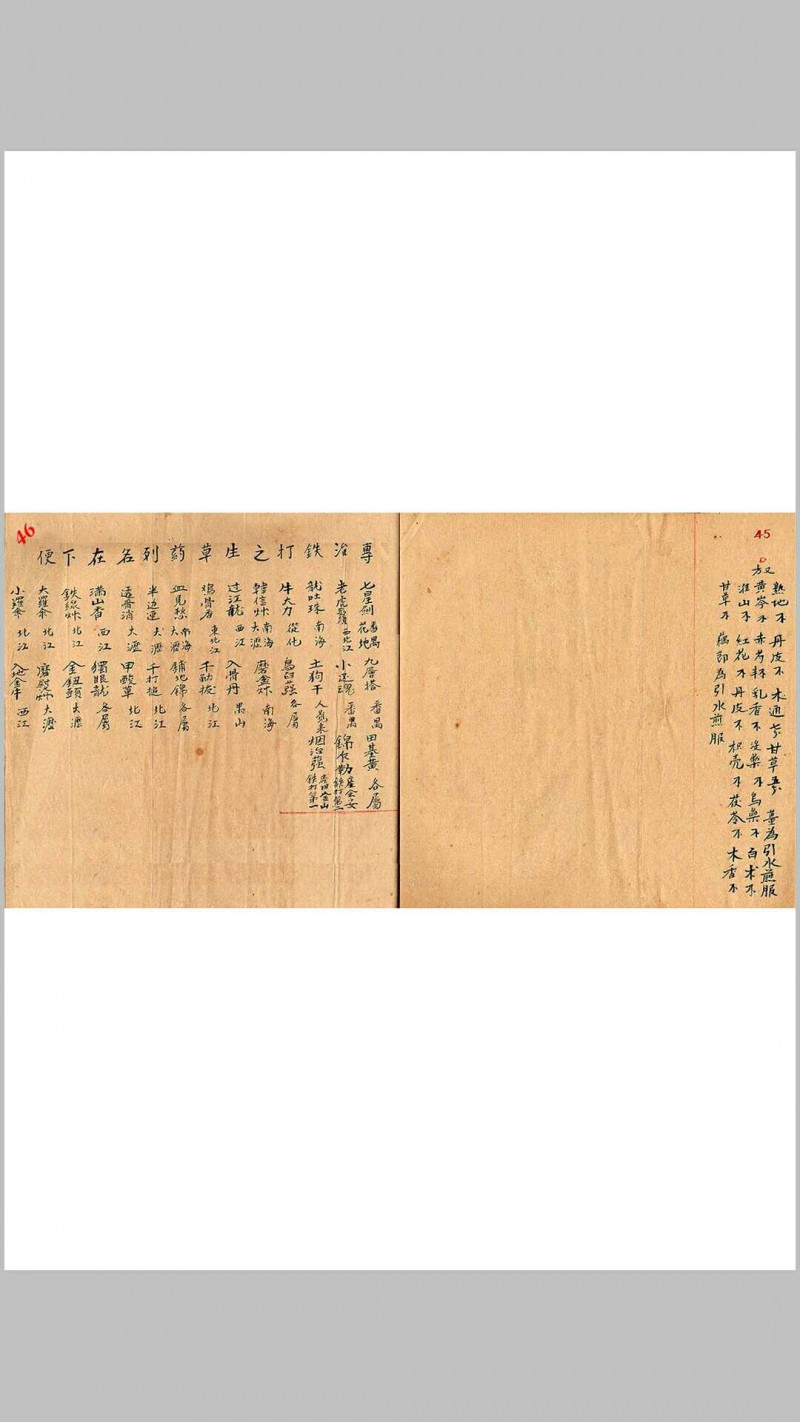 45
又方
熟地 丹皮 木通 甘草 薑為引水煎服
黃岑 赤芍 乳香 沒藥 烏藥 白术
淮山 紅花 丹皮 枳壳 茯苓 木香
甘草 為引水煎服
46
專治鉄打之生草葯列名在下便
七星劍 番禺花地 九層塔 番禺 田基黃 各屬
老虎鬚 西北江 小還魂 番禺 鉄打第二
龍吐珠 南海 土狗干 鉄打第一
牛大力 從化 各屬
韓信艸 南海大瀝 磨金艸 南海
过江龍 西江 入骨丹 禺山
鴉骨 東北江 千勒拔 北江
血見愁 南海大瀝 鋪地錦 各屬
半边蓮 大瀝 千打搥 北江
透骨消 大瀝 甲酸草 北江
滿山香 西江 獨眼龍 各屬
鉄線艸 北江 金鈕頭 大瀝
大羅傘 北江 大瀝
小羅傘 北江 入地金牛 西江